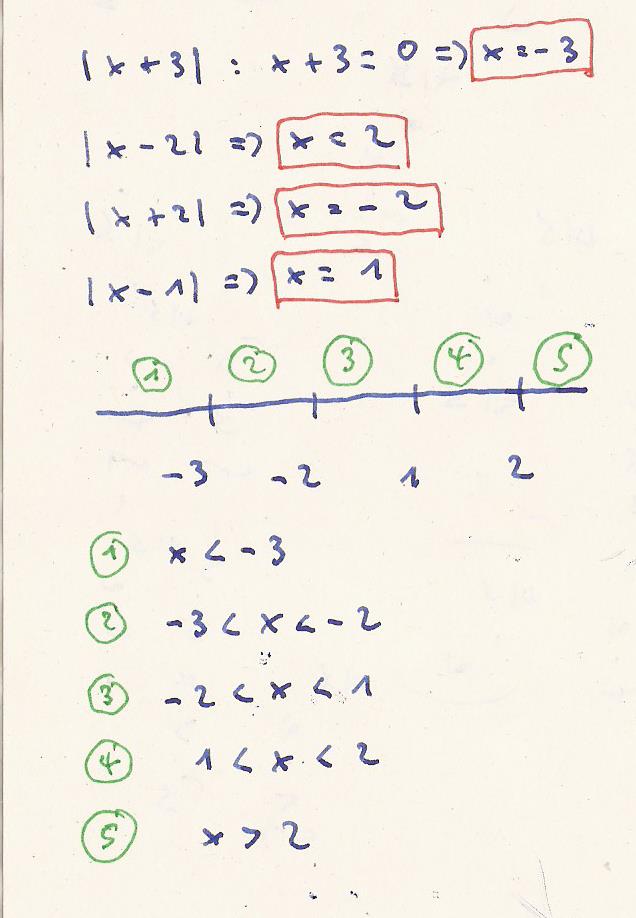 |x + 3| : x + 3 = 0 => x = - 3
|x - 2| => x < 2
|x + 2| => x = - 2
|x - 1| => x = 1
1 2 3 4 5
-3 -2 1 2
1 x < - 3
2 -3 < x < - 2
3 -2 < x < 1
4 1 < x < 2
5 x > 2